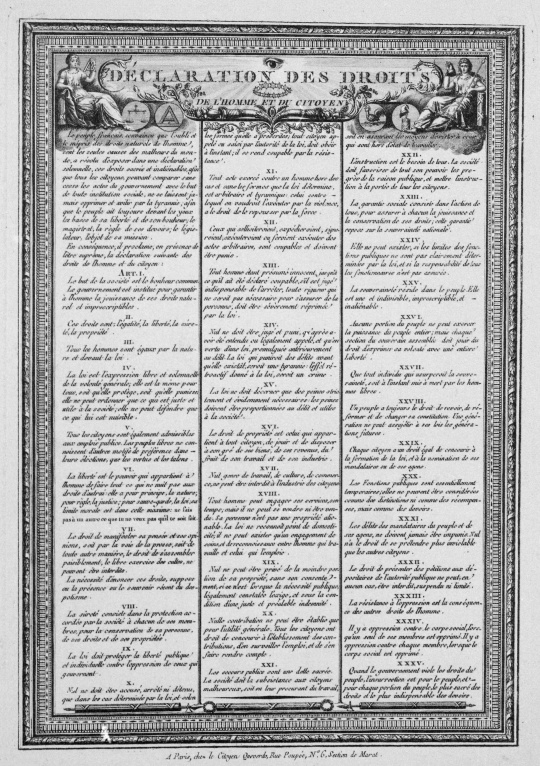 DÉCLARATION DES DROITS
DE L'HOMME ET DU CITOYEN
Le peuple français convaincu que l'oubli et
le mépris des droits naturels de l'homme,
sont les seules causes des malheurs du mon-
de, a résolu d'exposer dans une déclaration
solennelle, ces droits sacrés et inaliénables, afin
que tous les citoyens, pouvant comparer sans
cesse les actes du gouvernement avec le but
de toute institution sociale, ne se laissent ja-
mais opprimer et avilir par la tyrannie; afin
que le peuple ait toujours devant les yeux
les bases de sa liberté et de son bonheur; le
magistrat, la règle de ses devoirs; le légis-
lateur, l'objet de sa mission.
En conséquence, il proclame, en présence de
l'être suprême, la déclaration suivante des
droits de l'homme et du citoyen.
ART. I.
Le but de la société est le bonheur commun.
Le gouvernement est institué pour garantir
à l'homme la jouissance de ses droits natu-
rels et imprescriptibles.
II.
Ces droits sont; l'égalité, la liberté, la sûre-
té, la propriété.
III.
Tous les hommes sont égaux par la natu-
re et devant la loi.
IV.
La loi est l'expression libre et solennelle
de la volonté générale; elle est la même pour
tous, soit qu'elle protège, soit qu'elle punisse;
elle ne peut ordonner que ce qui est juste et
utile à la société; elle ne peut défendre que
ce qui lui est nuisible.
V.
Tous les citoyens sont également admissibles
aux emplois publics. Les peuples libres ne con-
noissent d'autres motifs de préférence dans
leurs élections, que les vertus et les talens.
VI.
La liberté est le pouvoir qui appartient à
l'homme de faire tout ce qui ne nuit pas aux
droits d'autrui: elle a pour principe, la nature;
pour règle, la justice; pour sauve-garde, la loi: sa
limite morale est dans cette maxime: ne fais
pas à un autre ce que tu ne veux pas qu'il te soit fait.
VII.
Le droit de manifester sa pensée et ses opi-
nions, soit par la voie de la presse, soit de
toute autre manière, le droit de s'assembler
paisiblement, le libre exercice des cultes, ne
peuvent être interdits.
La nécessité d'énoncer ces droits, suppose
ou la présence ou le souvenir récent du des-
potisme.
VIII.
La sûreté consiste dans la protection ac-
cordée par la société à chacun de ses mem-
bres, pour la conservation de sa personne,
de ses droits et de ses propriétés.
IX.
La loi doit protéger la liberté publique
et individuelle contre l'oppression de ceux qui
gouvernent.
X.
Nul ne doit être accusé, arrêté ni détenu,
que dans les cas déterminés par la loi, et selon
les formes qu'elle a prescrites, tout citoyen ap-
pelé ou saisi par l'autorité de la loi, doit obéir
à l'instant; il se rend coupable par la résis-
tance.
XI.
Tout acte exercé contre un homme hors des
cas et sans les formes que la loi détermine,
est arbitraire et tyrannique: celui contre
lequel on voudroit l'exécuter par la violence,
a le droit de le repousser par la force.
XII.
Ceux qui solliciteroient, expédieroient, signe-
roient, exécuteroient ou feroient exécuter des
actes arbitraires, sont coupables et doivent
être punis.
XIII.
Tout homme étant présumé innocent, jusqu'à
ce qu'il ait été déclaré coupable, s'il est jugé
indispensable de l'arrêter, toute rigueur qui
ne seroit pas nécessaire pour s'assurer de la
personne, doit être sévèrement réprimée
par la loi.
XIV.
Nul ne doit être jugé et puni, qu'après a-
voir été entendu ou légalement appelé, et qu'en
vertu d'une loi, promulguée antérieurement
au délit. La loi qui puniroit des délits avant
qu'elle existât, seroit une tyrannie: l'effet ré-
troactif donné à la loi, seroit un crime.
XV.
La loi ne doit décerner que des peines stric-
tement et évidemment nécessaires: les peines
doivent être proportionnées au délit et utiles
à la société.
XVI.
Le droit de propriété est celui qui appar-
tient à tout citoyen, de jouir et de disposer
à son gré de ses biens, de ses revenus, du
fruit de son travail et de son industrie.
XVII.
Nul genre de travail, de culture, de commer-
ce, ne peut être interdit à l'industrie des citoyens.
XVIII.
Tout homme peut engager ses services, son
temps; mais il ne peut se vendre ni être ven-
du. Sa personne n'est pas une propriété alié-
nable. La loi ne reconnoît point de domesti-
cité; il ne peut exister qu'un engagement de
soins et de reconnoissance entre l'homme qui tra-
vaille et celui qui l'emploie.
XIX.
Nul ne peut être privé de la moindre por-
tion de sa propriété, sans son consente-
ment, si ce n'est lorsque la nécessité publique,
légalement constatée l'exige, et sous la con-
dition d'une juste et préalable indemnité.
XX.
Nulle contribution ne peut être établie que
pour l'utilité générale. Tous les citoyens ont
droit de concourir à l'établissement des con-
tributions, d'en surveiller l'emploi, et de s'en
faire rendre compte.
XXI.
Les secours publics sont une dette sacrée.
La société doit la subsistance aux citoyens
malheureux, soit en leur procurant du travail,
soit en assurant les moyens d'exister à ceux
qui sont hors d'état de travailler.
XXII.
L'instruction est le besoin de tous. La société
doit favoriser de tout son pouvoir les pro-
grès de la raison publique, et mettre l'instruc-
tion à la portée de tous les citoyens.
XXIII.
La garantie sociale consiste dans l'action de
tous, pour assurer à chacun la jouissance et
la conservation de ses droits; cette garantie
repose sur la souveraineté nationale.
XXIV.
Elle ne peut exister, si les limites des fonc-
tions publiques ne sont pas clairement déter-
minées par la loi, et si la responsabilité de tous
les fonctionnaires n'est pas assurée.
XXV.
La souveraineté réside dans le peuple. Elle
est une et indivisible, imprescriptible, et
inaliénable.
XXVI.
Aucune portion du peuple ne peut exercer
la puissance du peuple entier; mais chaque
section du souverain assemblée doit jouir du
droit d'exprimer sa volonté avec une entière
liberté.
XXVII.
Que tout individu qui usurperoit la souve-
raineté, soit à l'instant mis à mort par les hom-
mes libres.
XXVIII.
Un peuple a toujours le droit de revoir, de ré-
former et de changer sa constitution. Une géné-
ration ne peut assujétir à ses lois les généra-
tions futures.
XXIX.
Chaque citoyen a un droit égal de concourir à
la formation de la loi, et à la nomination de ses
mandataires ou de ses agens.
XXX.
Les fonctions publiques sont essentiellement
temporaires; elles ne peuvent être considérées
comme des distinctions ni comme des récompen-
ses, mais comme des devoirs.
XXXI.
Les délits des mandataires du peuple et de
ses agens, ne doivent jamais être impunis. Nul
n'a le droit de se prétendre plus inviolable
que les autres citoyens.
XXXII.
Le droit de présenter des pétitions aux dé-
positaires de l'autorité publique ne peut, en
aucun cas, être interdit, suspendu ni limité.
XXXIII.
La résistance à l'oppression est la conséquen-
ce des autres droits de l'homme.
XXXIV.
Il y a oppression contre le corps social, lors-
qu'un seul de ses membres est opprimé. Il y a
oppression contre chaque membre, lorsque le
corps social est opprimé.
XXXV.
Quand le gouvernement viole les droits du
peuple, l'insurrection est pour le peuple, et
pour chaque portion du peuple, le plus sacré des
droits et le plus indispensable des devoirs.
A Paris, chez le Citoyen Queverdo, Rue Poupée, N.º 6, Section de Marat.